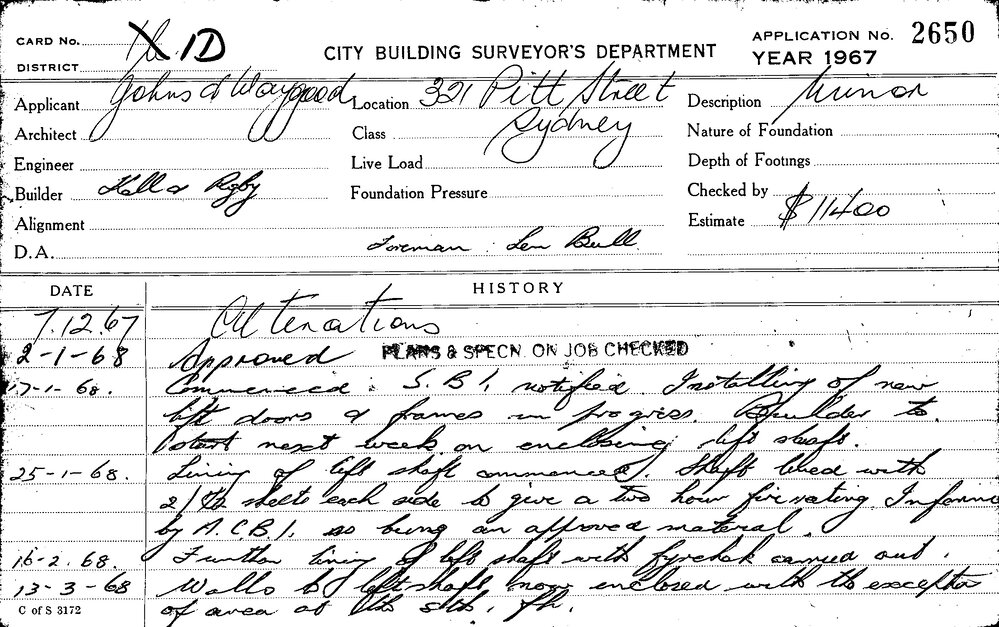 CARD No. 1D
DISTRICT
CITY BUILDING SURVEYOR'S DEPARTMENT
APPLICATION No. 2650
YEAR 1967
Applicant Johns & Waygood
Location 321 Pitt Street
Sydney
Description Minor
Architect
Class
Nature of Foundation
Engineer
Live Load
Depth of Footings
Builder Hall & Rigby
Foundation Pressure
Checked by
Alignment
Estimate $11400
D.A.
Foreman : Len Bull
DATE
HISTORY
7.12.67 Alterations
2-1-68 Approved PLANS & SPECN. ON JOB CHECKED
17-1-68. Commenced. S.B.I. notified. Installing of new
lift doors & frames in progress. Builder to
start next week on enclosing lift shaft.
25-1-68. Lining of lift shaft commenced. Shaft lined with
sheets each side to give a two hour fire rating.
by A.C.B.I. as being an approved material.
16-2.68. Further lining of lift shaft with fyrchek carried out.
13-3-68 Walls to lift shaft now enclosed with the exception
of area at the sth.
C of S 3172